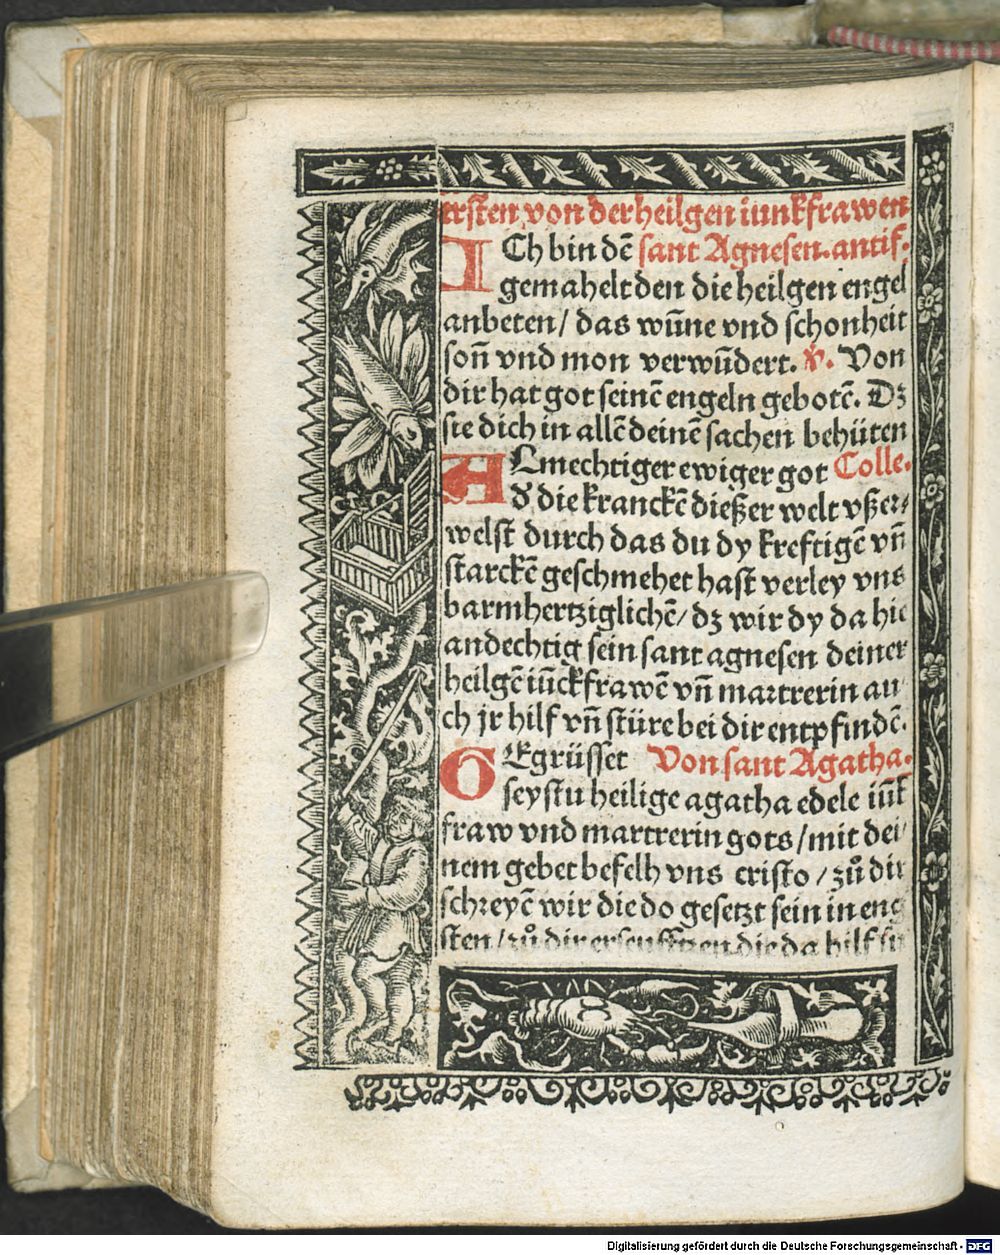 ersten von der heilgen iunkfrawen
ICh bin dē sant Agnesen. antif.
gemahelt den die heilgen engel
anbeten / das wūne vnd schonheit
son̄ vnd mon verwūdert. ℣. Von
dir hat got seinē engeln gebotē. Dꝫ
sie dich in allē deinē sachen behüten
ALmechtiger ewiger got Colle.
d̕ die kranckē dießer welt vßer⸗
welst durch das du dy kreftigē vn̄
starckē geschmehet hast verley vns
barmhertziglichē / dꝫ wir dy da hie
andechtig sein sant agnesen deiner
heilgē iūckfrawē vn̄ martrerin au
ch jr hilf vn̄ stüre bei dir entpfindē.
GEgrüsset Von sant Agatha.
seystu heilige agatha edele iūk
fraw vnd martrerin gots / mit dei
nem gebet befelh vns cristo / zů dir
schreyē wir die do gesetzt sein in eng
sten / zů dir erseufftzen die da hilf su
Digitalisierung gefördert durch die Deutsche Forschungsgemeinschaft - DFG